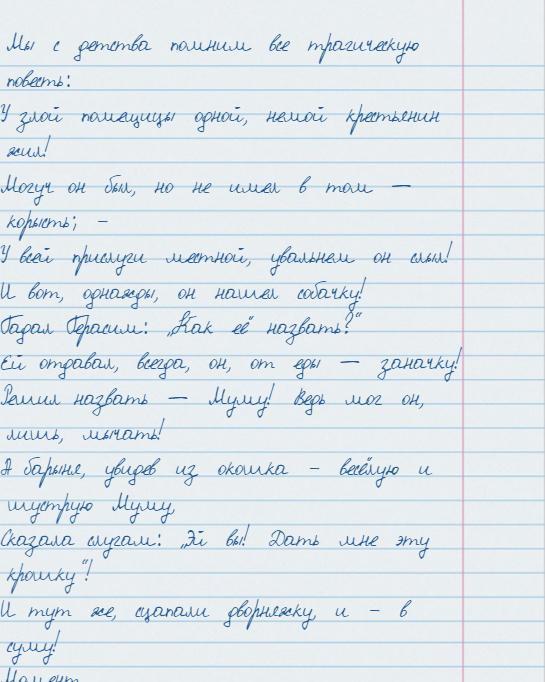 Мы с детства помним все трагическую
повесть:
У злой помещицы одной, немой крестьянин
жил!
Могуч он был, но не имел в том —
корысть; –
У всей прислуги местной, увальнем он слыл!
И вот, однажды, он нашел собачку!
Гадал Герасим: „Как её назвать?"
Ей отдавал, всегда, он, от еды — заначку!
Решил назвать — Муму! Ведь мог он,
лишь, мычать!
А барыня, увидев из окошка – весёлую и
шуструю Муму,
Сказала слугам: „Эй вы! Дать мне эту
крошку"!
И тут же, сцапали дворняжку, и – в
суму!
Момент